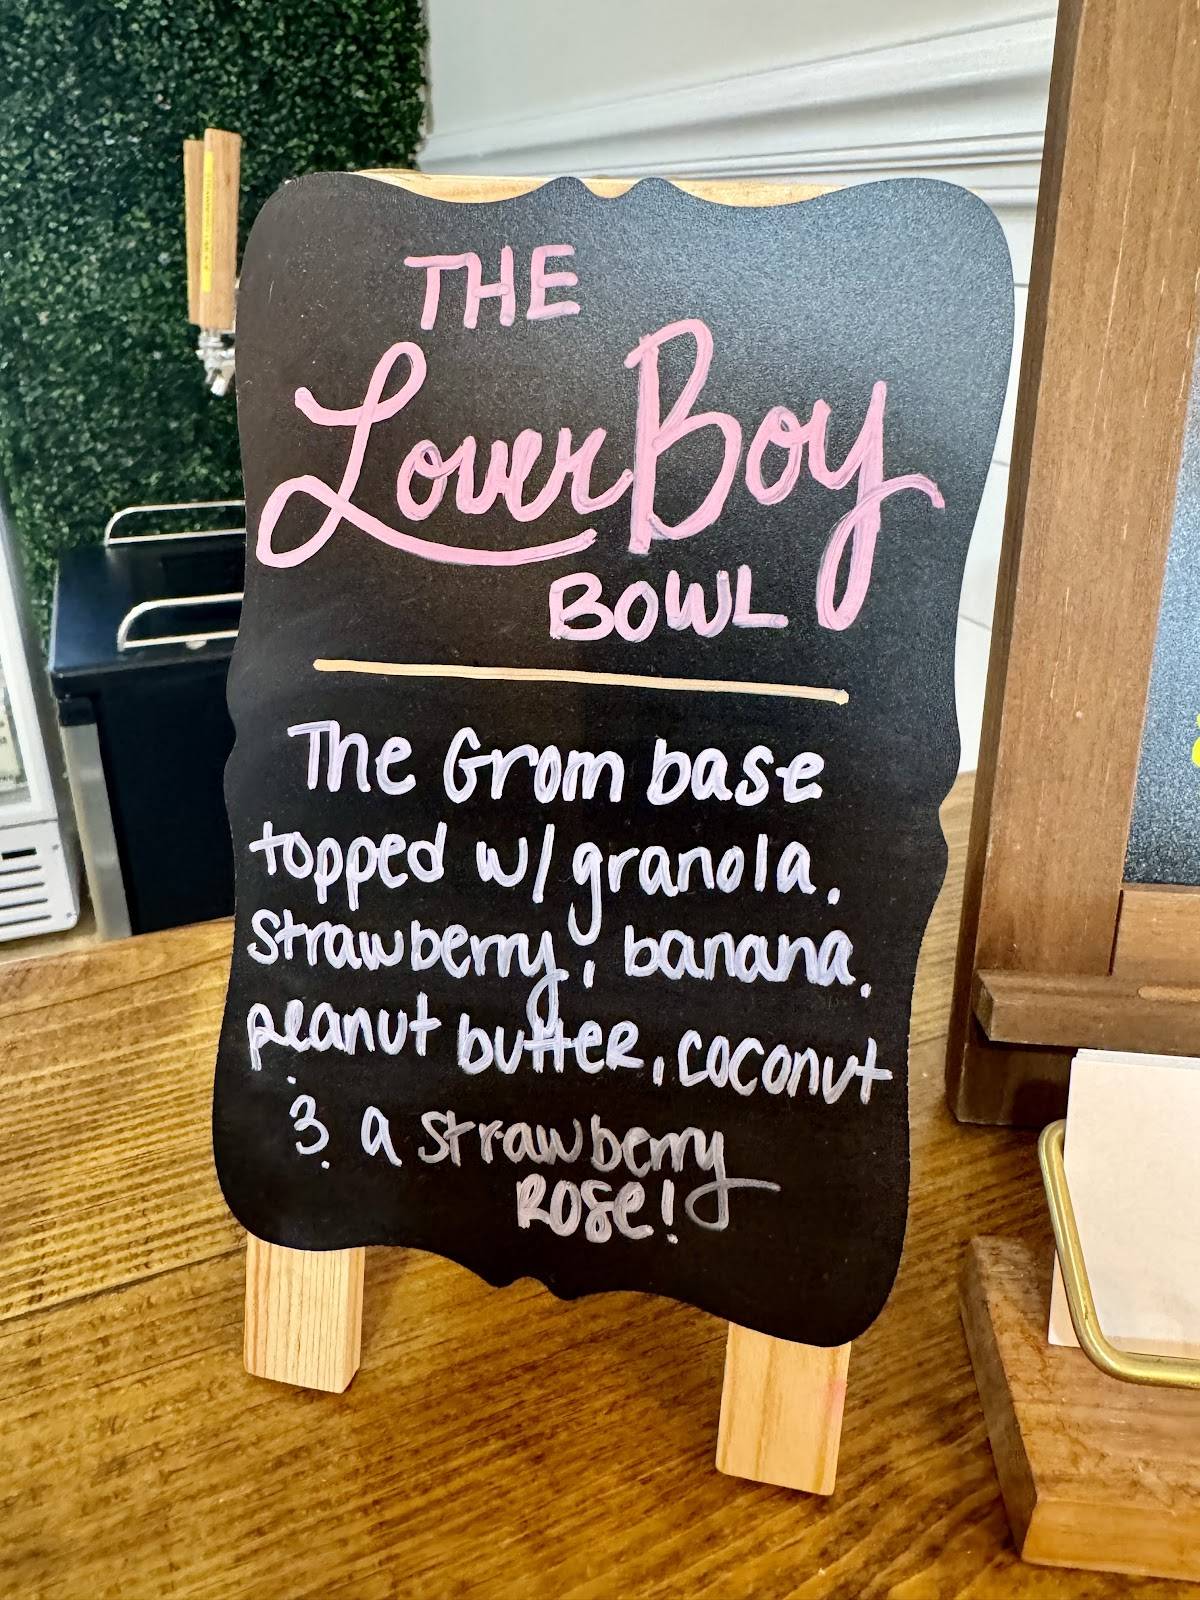 THE
LoverBoy
BOWL
The Grom base
topped w/granola,
strawberry, banana,
peanut butter, coconut
& a strawberry
ROSE!